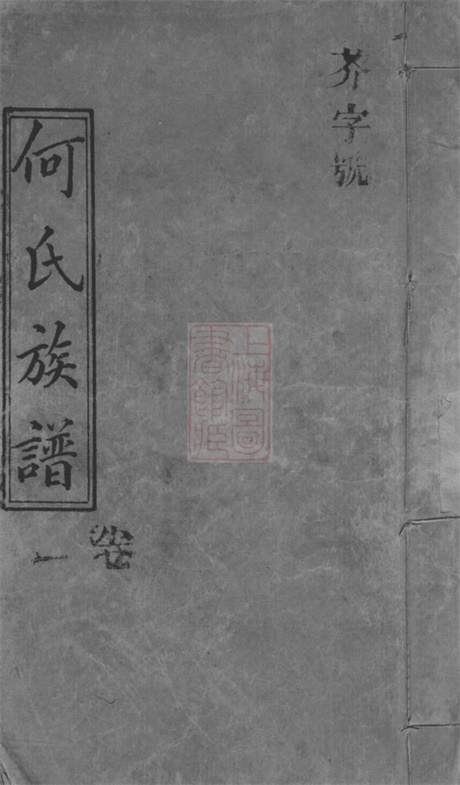 芥字號
上海圖
書館藏
何氏族譜
卷一